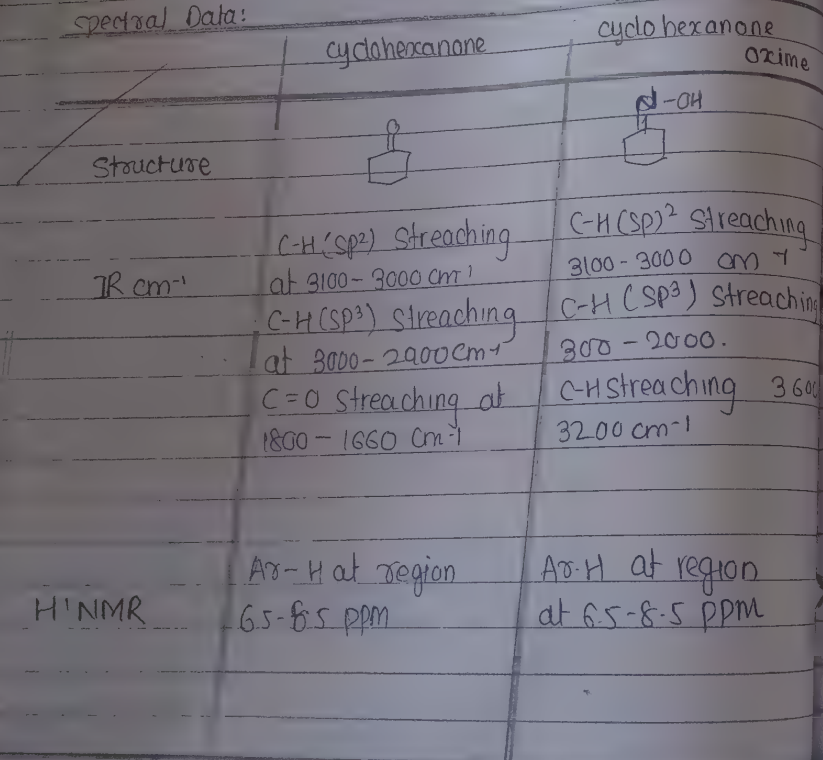 Spectral Data:
cyclohexanone
cyclohexanone
oxime
Structure
O
N-OH
IR cm-1
C-H (SP2) Streaching
at 3100-3000 cm1
C-H (SP3) Streaching
at 3000-2900cm-1
C=O Streaching at
1800-1660 cm-1
C-H (SP)2 Streaching
3100-3000 cm-1
C-H (SP3) Streaching
300-2000.
C-H Streaching 3600
3200 cm-1
H'NMR
Ar-H at region
6.5-8.5 PPM
Ar-H at region
at 6.5-8.5 PPM